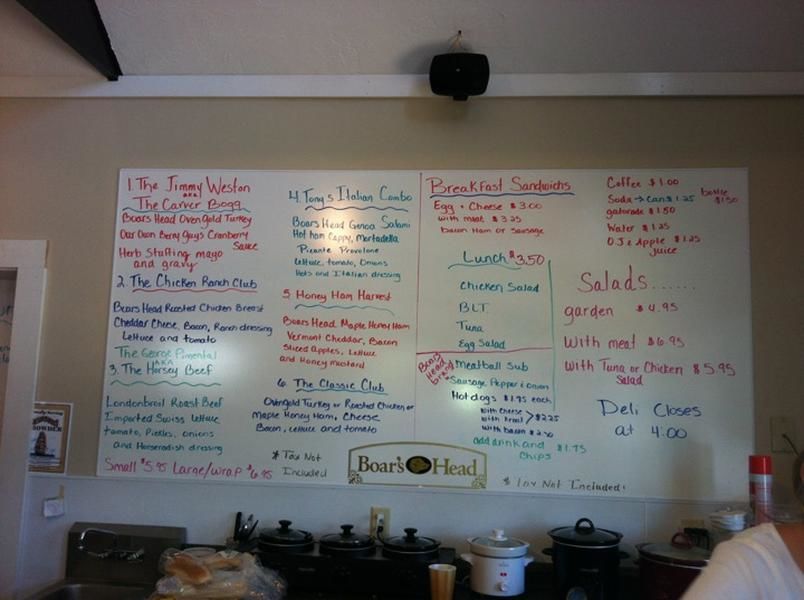 1. The Jimmy Weston
aka
The Carver Bogg
Boars Head Ovengold Turkey
Our Own Berry Guys Cranberry
Sauce
Herb Stuffing mayo
and gravy
2. The Chicken Ranch Club
Boars Head Roasted Chicken Breast
Cheddar Cheese, Bacon, Ranch dressing
Lettuce and tomato
The George Pimental
AKA
3. The Horsey Beef
Londonbroil Roast Beef
Imported Swiss lettuce
tomato, Pickles, onions
and Horseradish dressing
Small $5.95 Large/wrap $6.95
4. Tony's Italian Combo
Boars Head Genoa Salami
Hot ham Cappy, Mortadella
Picante Provolone
lettuce, tomato, Onions
Hots and Italian dressing
5. Honey Ham Harvest
Boars Head Maple Honey Ham
Vermont Cheddar, Bacon
Sliced Apples, Lettuce
and Honey Mustard
6. The Classic Club
Ovengold Turkey or Roasted Chicken or
Maple Honey Ham, Cheese
Bacon, lettuce and tomato
* Tax Not
Included
Boar's Head
Breakfast Sandwichs
Egg + Cheese $3.00
with meat $3.25
bacon Ham or Sausage
Lunch $3.50
Chicken Salad
B.L.T.
Tuna
Egg Salad
Boars Head Brand
Meatball Sub
Sausage Pepper & onion
Hot dogs $1.75 each
with Cheese
with Kraut > $2.25
with bacon $2.50
add drink and
Chips $1.75
* Tax Not Included!
Coffee $1.00
Soda → Can $1.25 bottle $1.50
gatorade $1.50
Water $1.25
O.J & Apple $1.25
juice
Salads......
garden $4.95
with meat $6.95
with Tuna or Chicken $5.95
Salad
Deli Closes
at 4:00